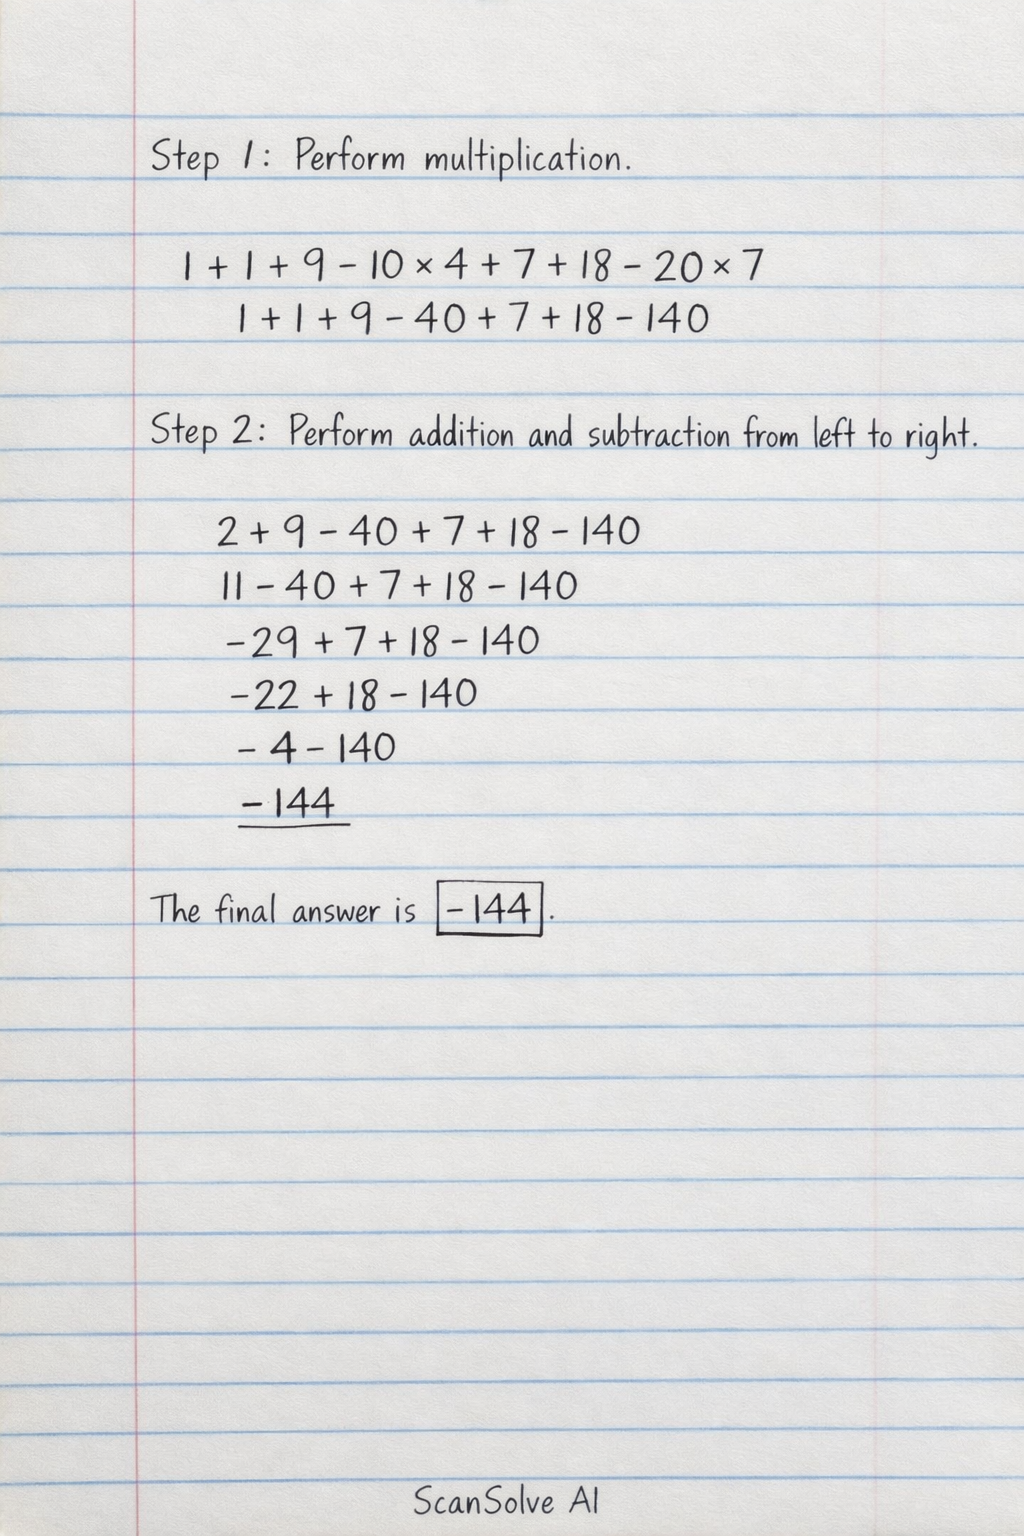 Step 1: Perform multiplication.
1 + 1 + 9 - 10 × 4 + 7 + 18 - 20 × 7
1 + 1 + 9 - 40 + 7 + 18 - 140
Step 2: Perform addition and subtraction from left to right.
2 + 9 - 40 + 7 + 18 - 140
11 - 40 + 7 + 18 - 140
-29 + 7 + 18 - 140
-22 + 18 - 140
- 4 - 140
- 144
The final answer is -144.
ScanSolve AI